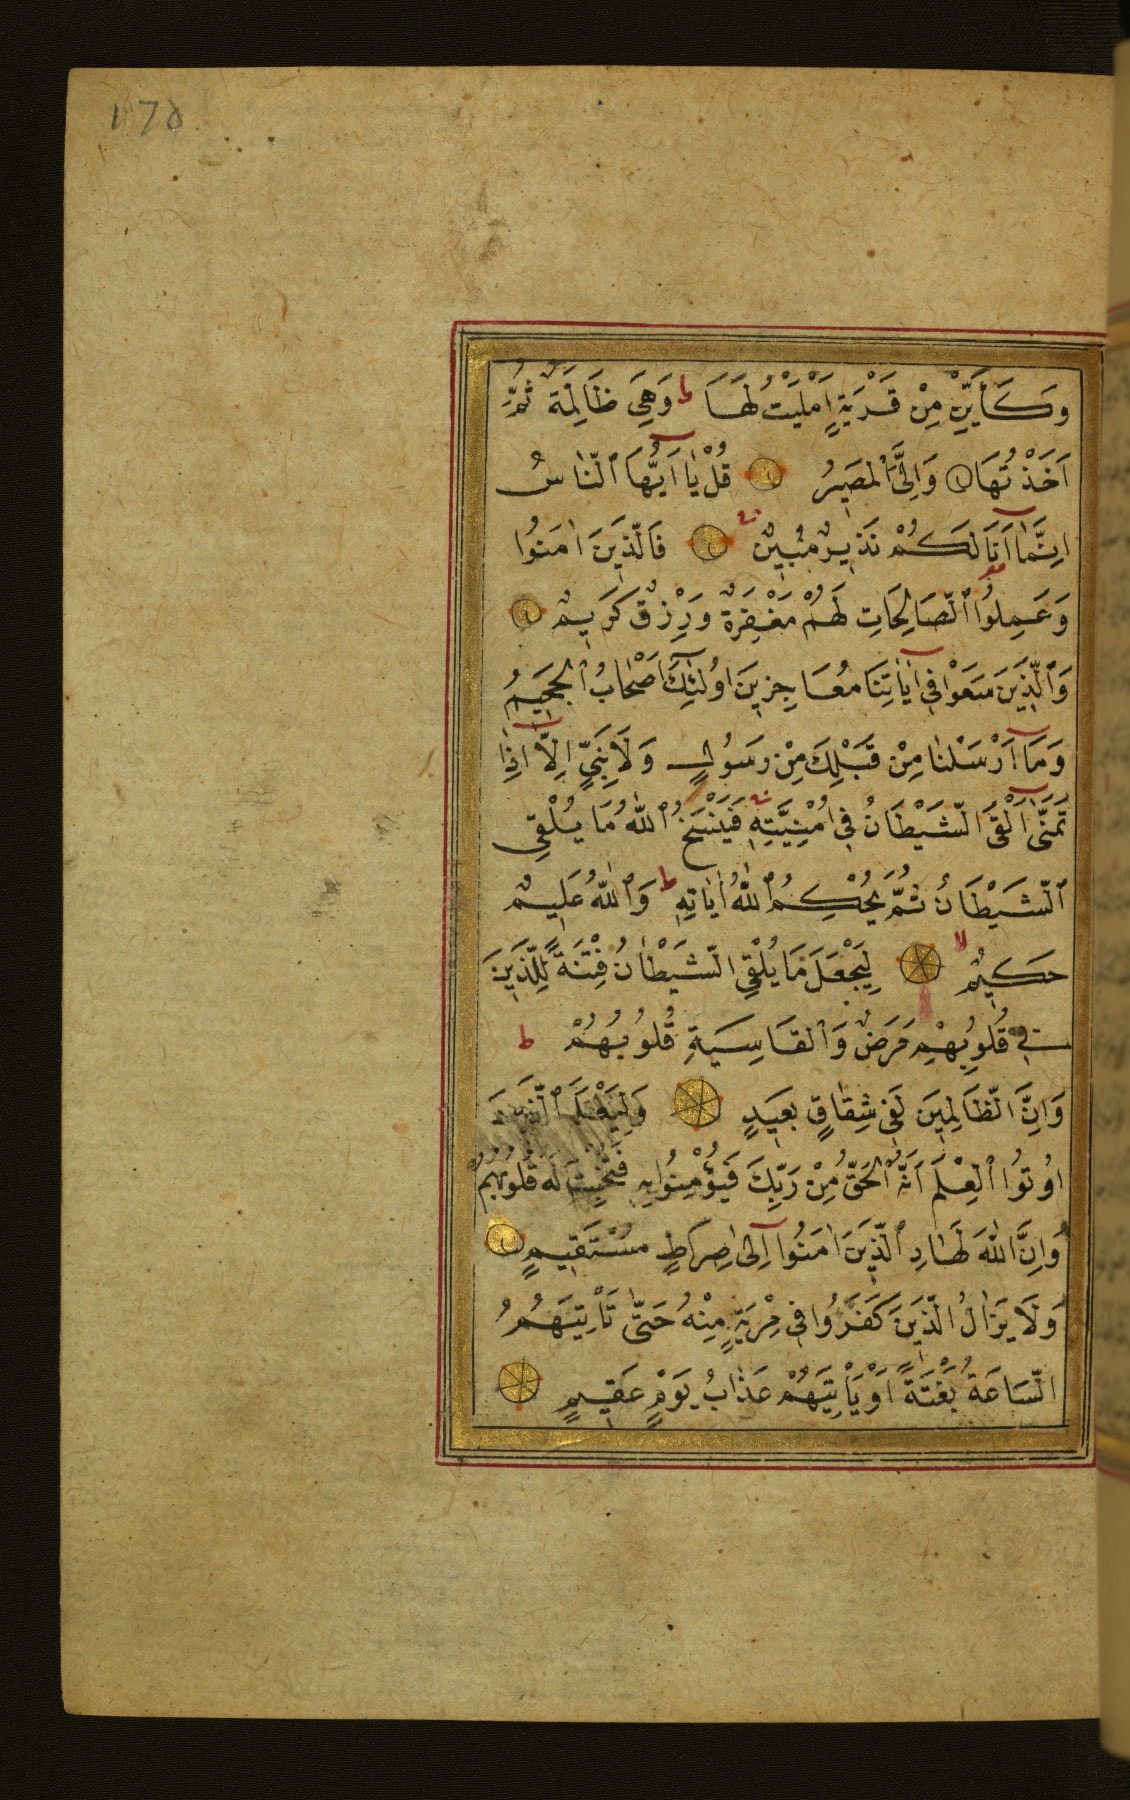 170
وَكَأَيِّنْ مِنْ قَرْيَةٍ اَمْلَيْتُ لَهَا ط وَهِيَ ظَالِمَةٌ ثُمَّ
اَخَذْتُهَا وَاِلَيَّ الْمَصِيرُ قُلْ يَا اَيُّهَا ٱلنَّاسُ
اِنَّمَا اَنَا لَكُمْ نَذِيرٌ مُبِينٌ فَالَّذِينَ اٰمَنُوا
وَعَمِلُوا ٱلصَّالِحَاتِ لَهُمْ مَغْفِرَةٌ وَرِزْقٌ كَرِيمٌ
وَٱلَّذِينَ سَعَوْا فِي اٰيَاتِنَا مُعَاجِزِينَ اُولٰئِكَ اَصْحَابُ ٱلْجَحِيمِ
وَمَا اَرْسَلْنَا مِنْ قَبْلِكَ مِنْ رَسُولٍ وَلَا نَبِيٍّ اِلَّا اِذَا
تَمَنَّىٰ اَلْقَى الشَّيْطَانُ فِي اُمْنِيَّتِهِ فَيَنْسَخُ ٱللّٰهُ مَا يُلْقِي
ٱلشَّيْطَانُ ثُمَّ يُحْكِمُ ٱللّٰهُ اٰيَاتِهِ ط وَٱللّٰهُ عَلِيمٌ
حَكِيمٌ لا لِيَجْعَلَ مَا يُلْقِي الشَّيْطَانُ فِتْنَةً لِلَّذِينَ
فِي قُلُوبِهِمْ مَرَضٌ وَٱلْقَاسِيَةِ قُلُوبُهُمْ ط
وَاِنَّ الظَّالِمِينَ لَفِي شِقَاقٍ بَعِيدٍ وَلِيَعْلَمَ ٱلَّذِينَ
اُوتُوا ٱلْعِلْمَ اَنَّهُ ٱلْحَقُّ مِنْ رَبِّكَ فَيُؤْمِنُوا بِهِ فَتُخْبِتَ لَهُ قُلُوبُهُمْ
وَاِنَّ اللّٰهَ لَهَادِ ٱلَّذِينَ اٰمَنُوا اِلَىٰ صِرَاطٍ مُسْتَقِيمٍ
وَلَا يَزَالُ الَّذِينَ كَفَرُوا فِي مِرْيَةٍ مِنْهُ حَتَّىٰ تَأْتِيَهُمُ
السَّاعَةُ بَغْتَةً اَوْ يَأْتِيَهُمْ عَذَابُ يَوْمٍ عَقِيمٍ